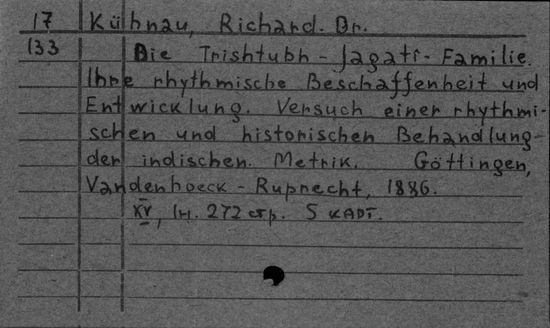 17 Kühnau, Richard. Dr.
133 Die Trishtubh - Jagati - Familie.
Ihre rhythmische Beschaffenheit und
Entwicklung. Versuch einer rhythmi-
schen und historischen Behandlung
der indischen Metrik. Göttingen,
Vandenhoeck - Ruprecht, 1886.
XV, 1н. 272 стр. 5 карт.